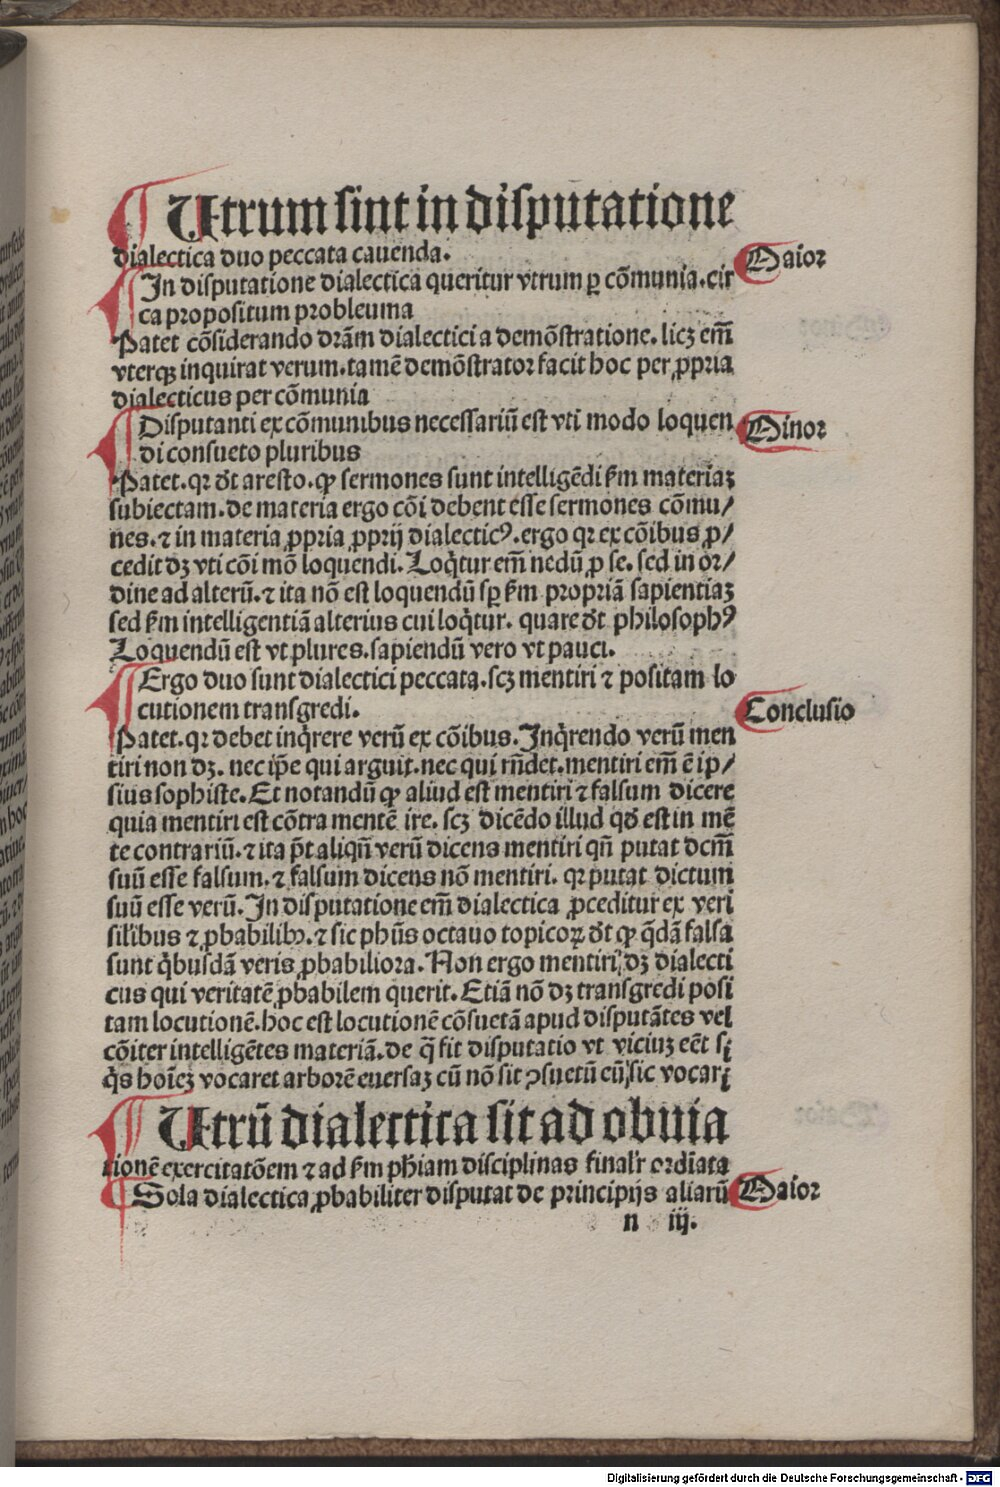 Utrum sint in disputatione
dialectica duo peccata cauenda.
Maior
In disputatione dialectica queritur vtrum ꝑ cõmunia. cir
ca propositum probleuma
Patet cõsiderando drãm dialectici a demõstratione. licꝫ em̃
vterqꝫ inquirat verum. tamẽ demõstrator facit hoc per ꝓpria
dialecticus per cõmunia
Disputanti ex cõmunibus necessariũ est vti modo loquen
Minor
di consueto pluribus
Patet. qꝛ dt̃ aresto. ꝙ sermones sunt intelligẽdi ẜm materiaꝫ
subiectam. de materia ergo cõi debent esse sermones cõmu/
nes. ⁊ in materia ꝓpria ꝓprij dialecticꝰ. ergo qꝛ ex cõibus ꝓ/
cedit dꝫ vti cõi mõ loquendi. Loq̃tur em̃ nedũ ꝓ se. sed in or/
dine ad alterũ. ⁊ ita nõ est loquendũ sꝑ ẜm propriã sapientiaꝫ
sed ẜm intelligentiã alterius cui loq̃tur. quare dt̃ philosophꝰ
Loquendũ est vt plures. sapiendũ vero vt pauci.
Ergo duo sunt dialectici peccata. scꝫ mentiri ⁊ positam lo
cutionem transgredi.
Conclusio
Patet. qꝛ debet inq̃rere verũ ex cõibus. Inq̃rendo verũ men
tiri non dꝫ. nec ip̃e qui arguit. nec qui rñdet. mentiri em̃ ẽ ip/
sius sophiste. Et notandũ ꝙ aliud est mentiri ⁊ falsum dicere
quia mentiri est cõtra mentẽ ire. scꝫ dicẽdo illud qd̃ est in mẽ
te contrariũ. ⁊ ita p̃t aliqñ verũ dicens mentiri qñ putat dcm̃
suũ esse falsum. ⁊ falsum dicens nõ mentiri. qꝛ putat dictum
suũ esse verũ. In disputatione em̃ dialectica ꝓceditur ex veri
silibus ⁊ ꝓbabilibꝫ. ⁊ sic phũs octauo topicoꝝ dt̃ ꝙ q̃dã falsa
sunt q̃busdã veris ꝓbabiliora. Non ergo mentiri dꝫ dialecti
cus qui veritatẽ ꝓbabilem querit. Etiã nõ dꝫ transgredi posi
tam locutionẽ. hoc est locutionẽ cõsuetã apud disputãtes vel
cõiter intelligẽtes materiã. de q̃ fit disputatio vt viciuꝫ eẽt si
q̃s hoĩeꝫ vocaret arborẽ euersaꝫ cũ nõ sit ꝯsuetũ eũ sic vocari
Utrũ dialectica sit ad obuia
tionẽ exercitatõem ⁊ ad ẜm phiam disciplinas finalr̃ ordĩata
Sola dialectica ꝓbabiliter disputat de principijs aliarũ
Maior
n iij.
Digitalisierung gefördert durch die Deutsche Forschungsgemeinschaft - DFG